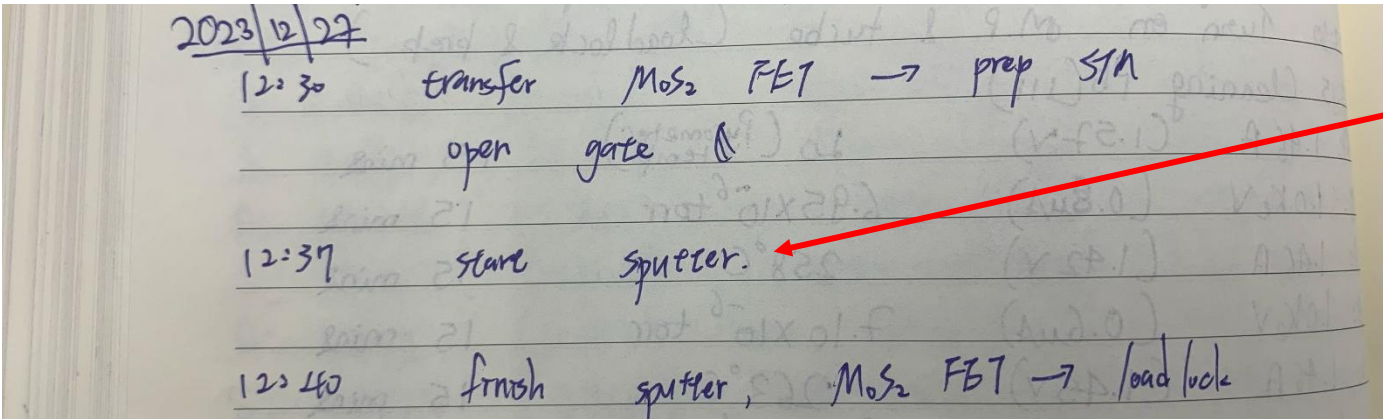 2023/12/27
12:30 transfer MoS₂ FET → prep STM
open gate
12:37 start sputter.
12:40 finish sputter, MoS₂ FET → load lock